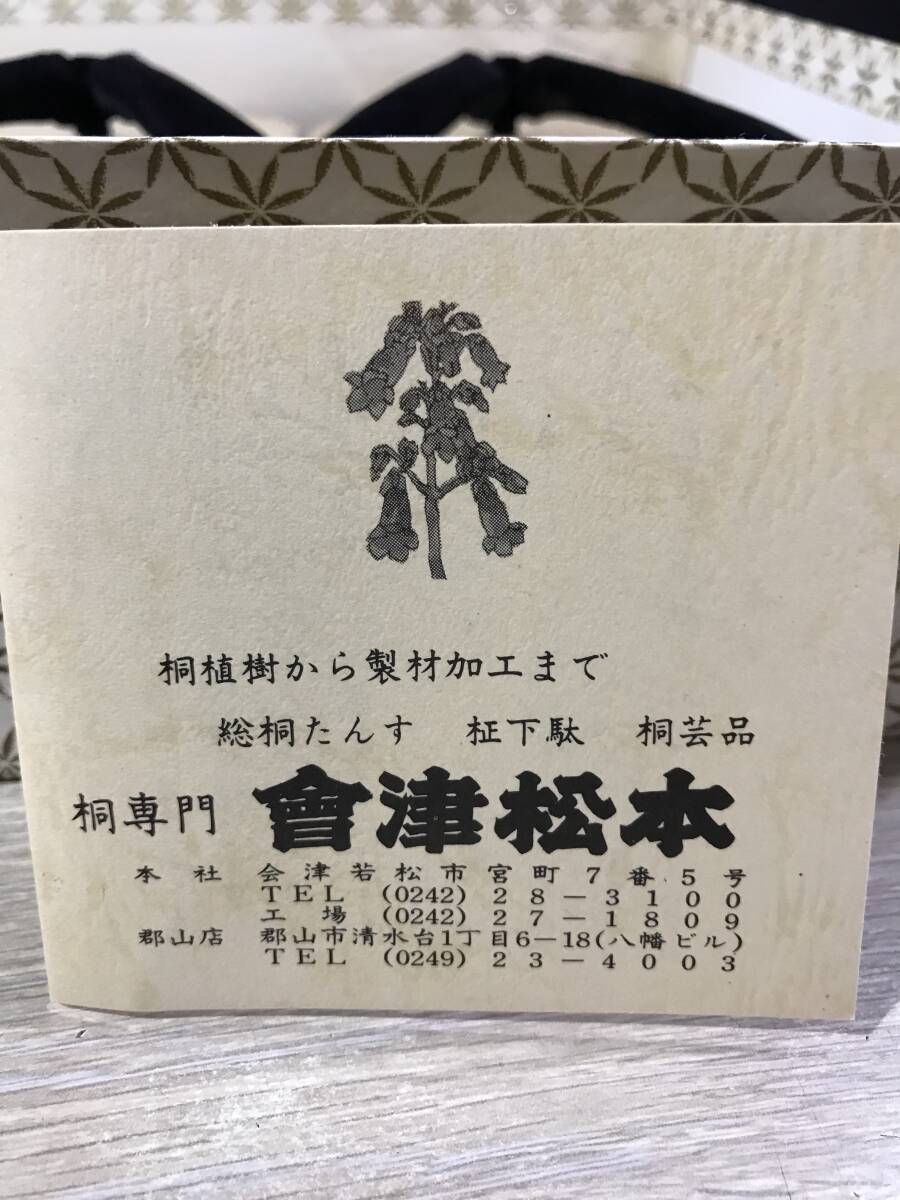 桐植樹から製材加工まで
総桐たんす 柾下駄 桐芸品
桐専門 會津松本
本社 会津若松市宮町7番5号
TEL (0242) 28-3100
工場 (0242) 27-1809
郡山店 郡山市清水台1丁目6-18(八幡ビル)
TEL (0249) 23-4003